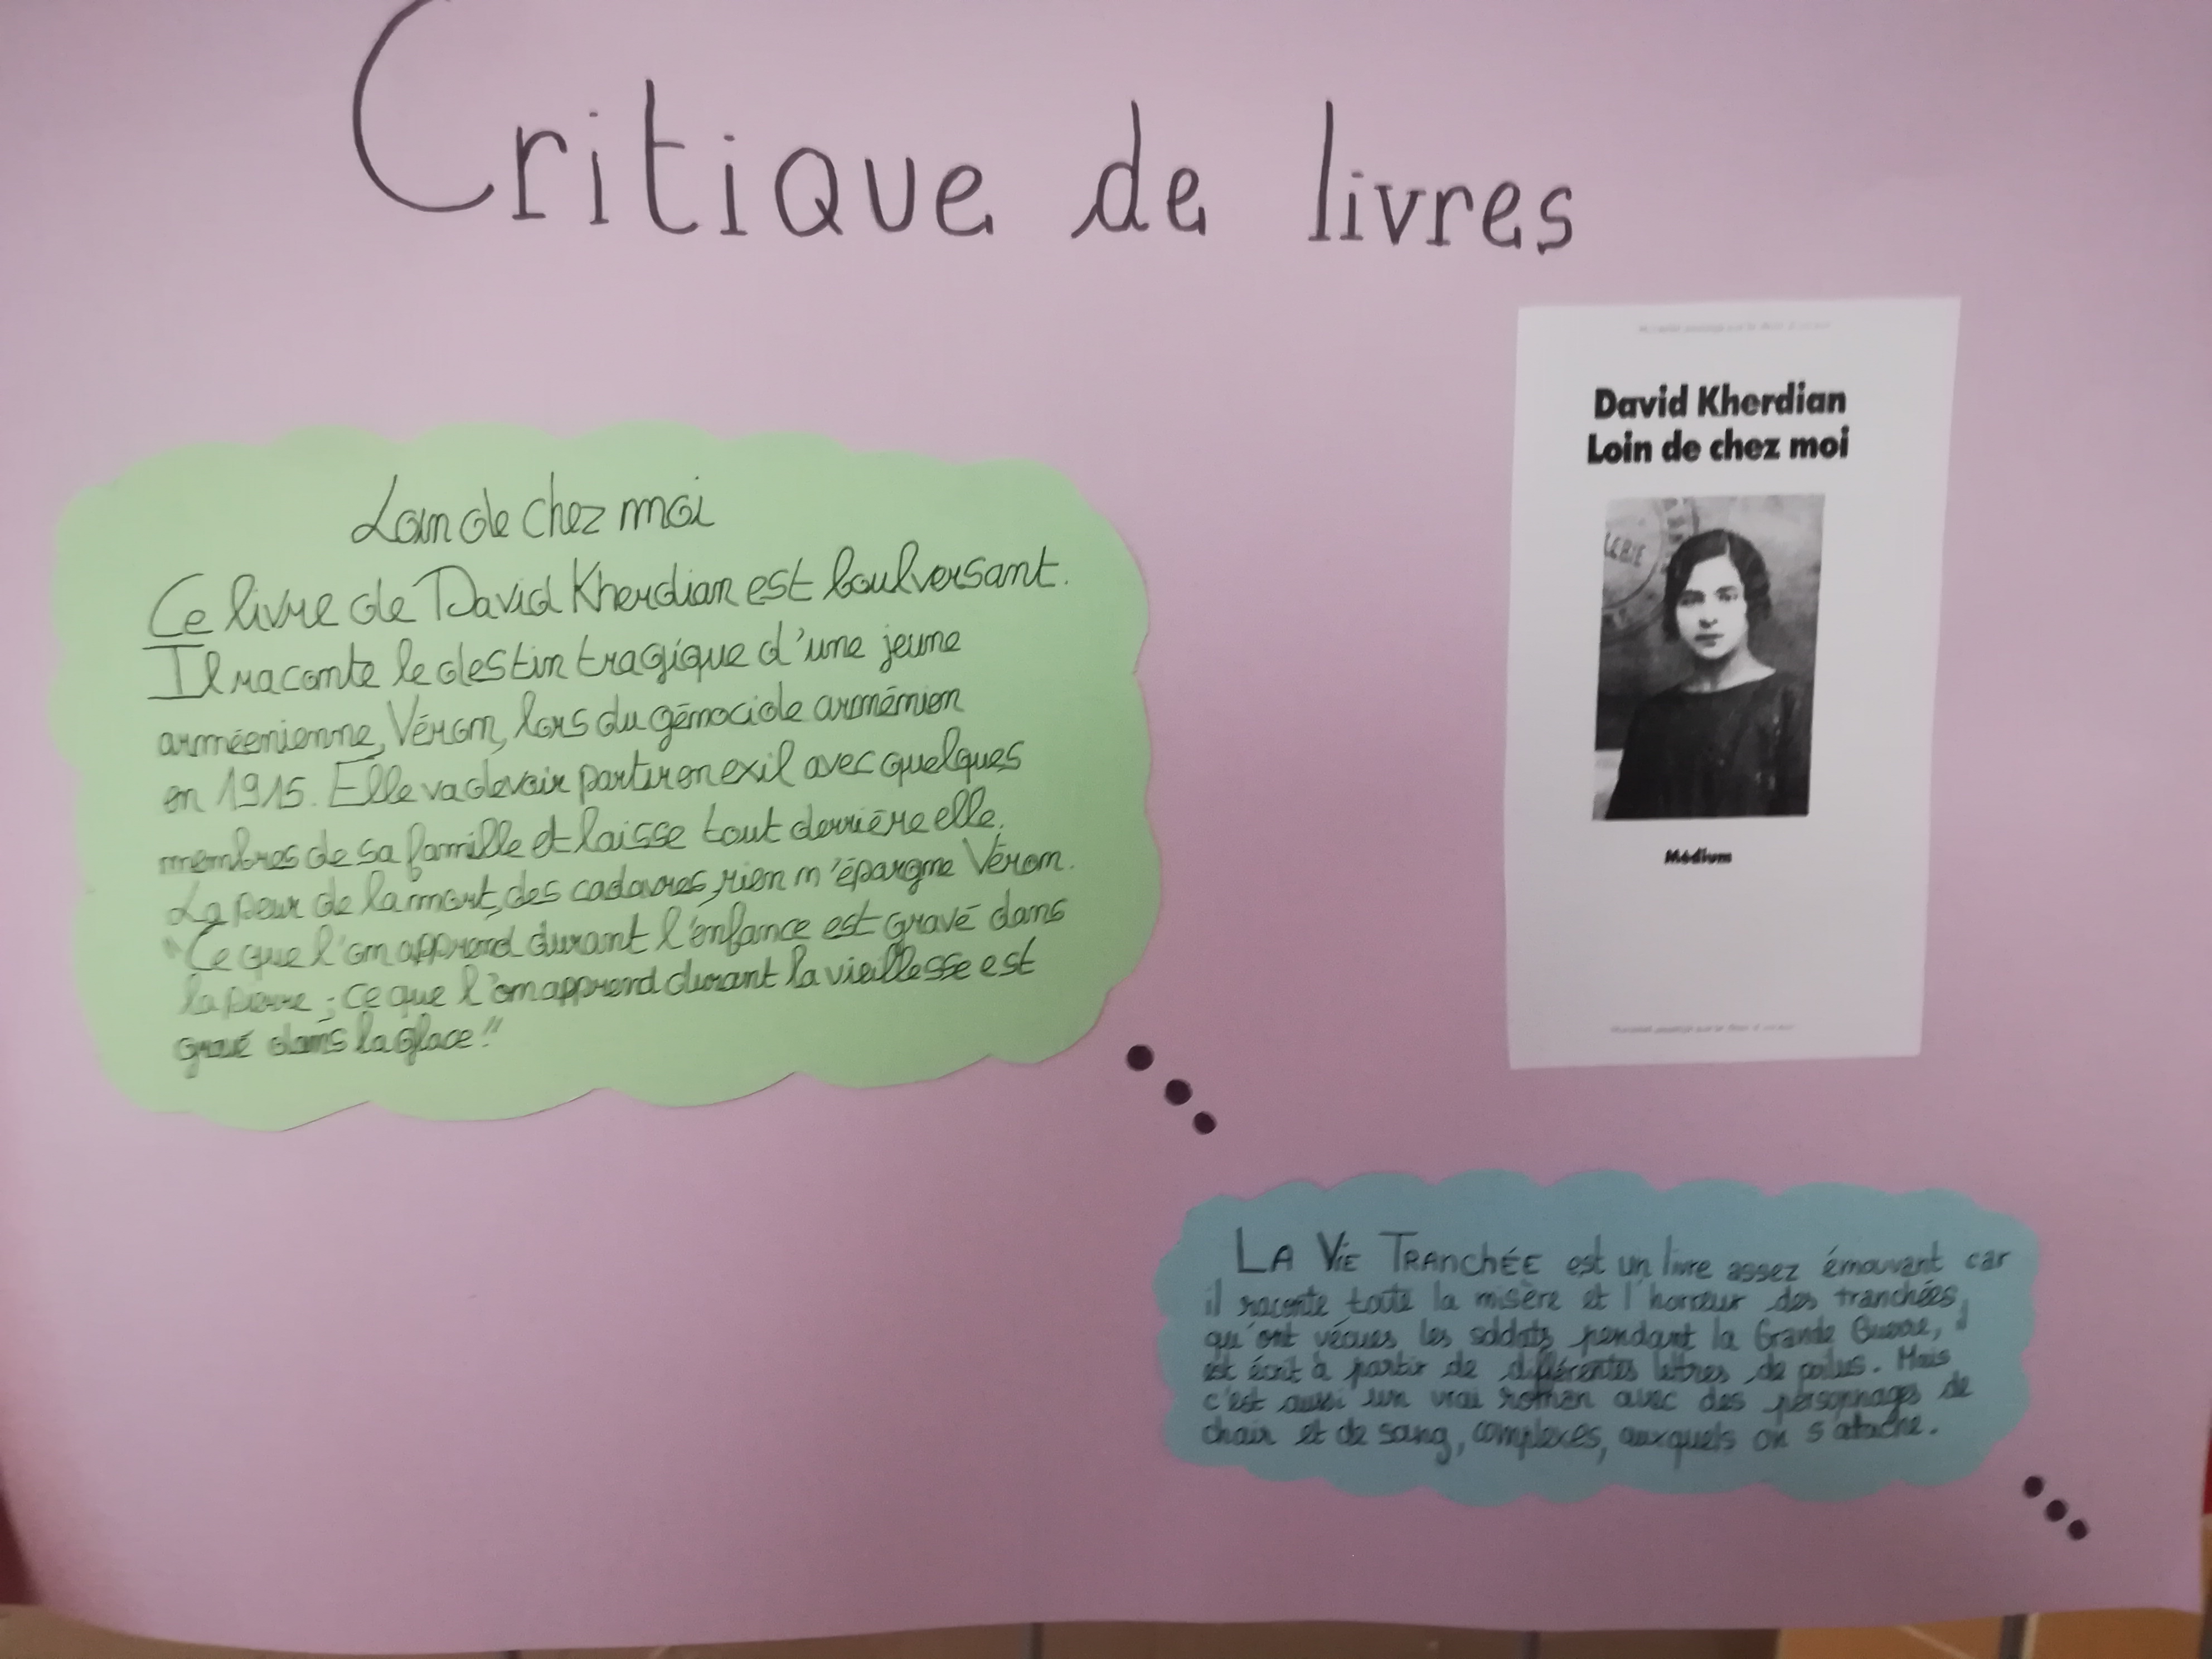 Critique de livres
Loin de chez moi
Ce livre de David Kherdian est boulversant.
Il raconte le destin tragique d'une jeune
arméenienne, Véron, lors du génocide arménien
en 1915. Elle va devoir partir en exil avec quelques
membres de sa famille et laisse tout derrière elle.
La peur de la mort, des cadavres, rien n'épargne Véron.
"Ce que l'on apprend durant l'enfance est gravé dans
la pierre ; ce que l'on apprend durant la vieillesse est
gravé dans la glace."
David Kherdian
Loin de chez moi
Médium
LA VIE TRANCHÉE est un livre assez émouvant car
il raconte toute la misère et l'horreur des tranchées,
qu'ont vécues les soldats pendant la Grande Guerre, il
est écrit à partir de différentes lettres de poilus. Mais
c'est aussi un vrai roman avec des personnages de
chair et de sang, complexes, auxquels on s'attache.